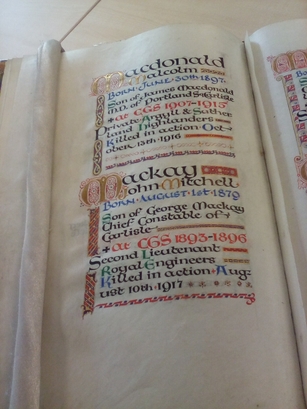 Macdonald
Malcolm
Born · June · 30th · 1897 ·
Son of James Macdonald
M.D. of Portland Sq Carlisle
+ at CGS 1907-1915
Private Argyll & Suther
land Highlanders
Killed in action Oct
ober 13th 1916
Mackay
John Mitchell
Born · August · 1st · 1879
Son of George Mackay
Chief Constable of
Carlisle
+ at CGS 1893-1896
Second Lieutenant
Royal Engineers
Killed in action + Aug-
ust 10th · 1917